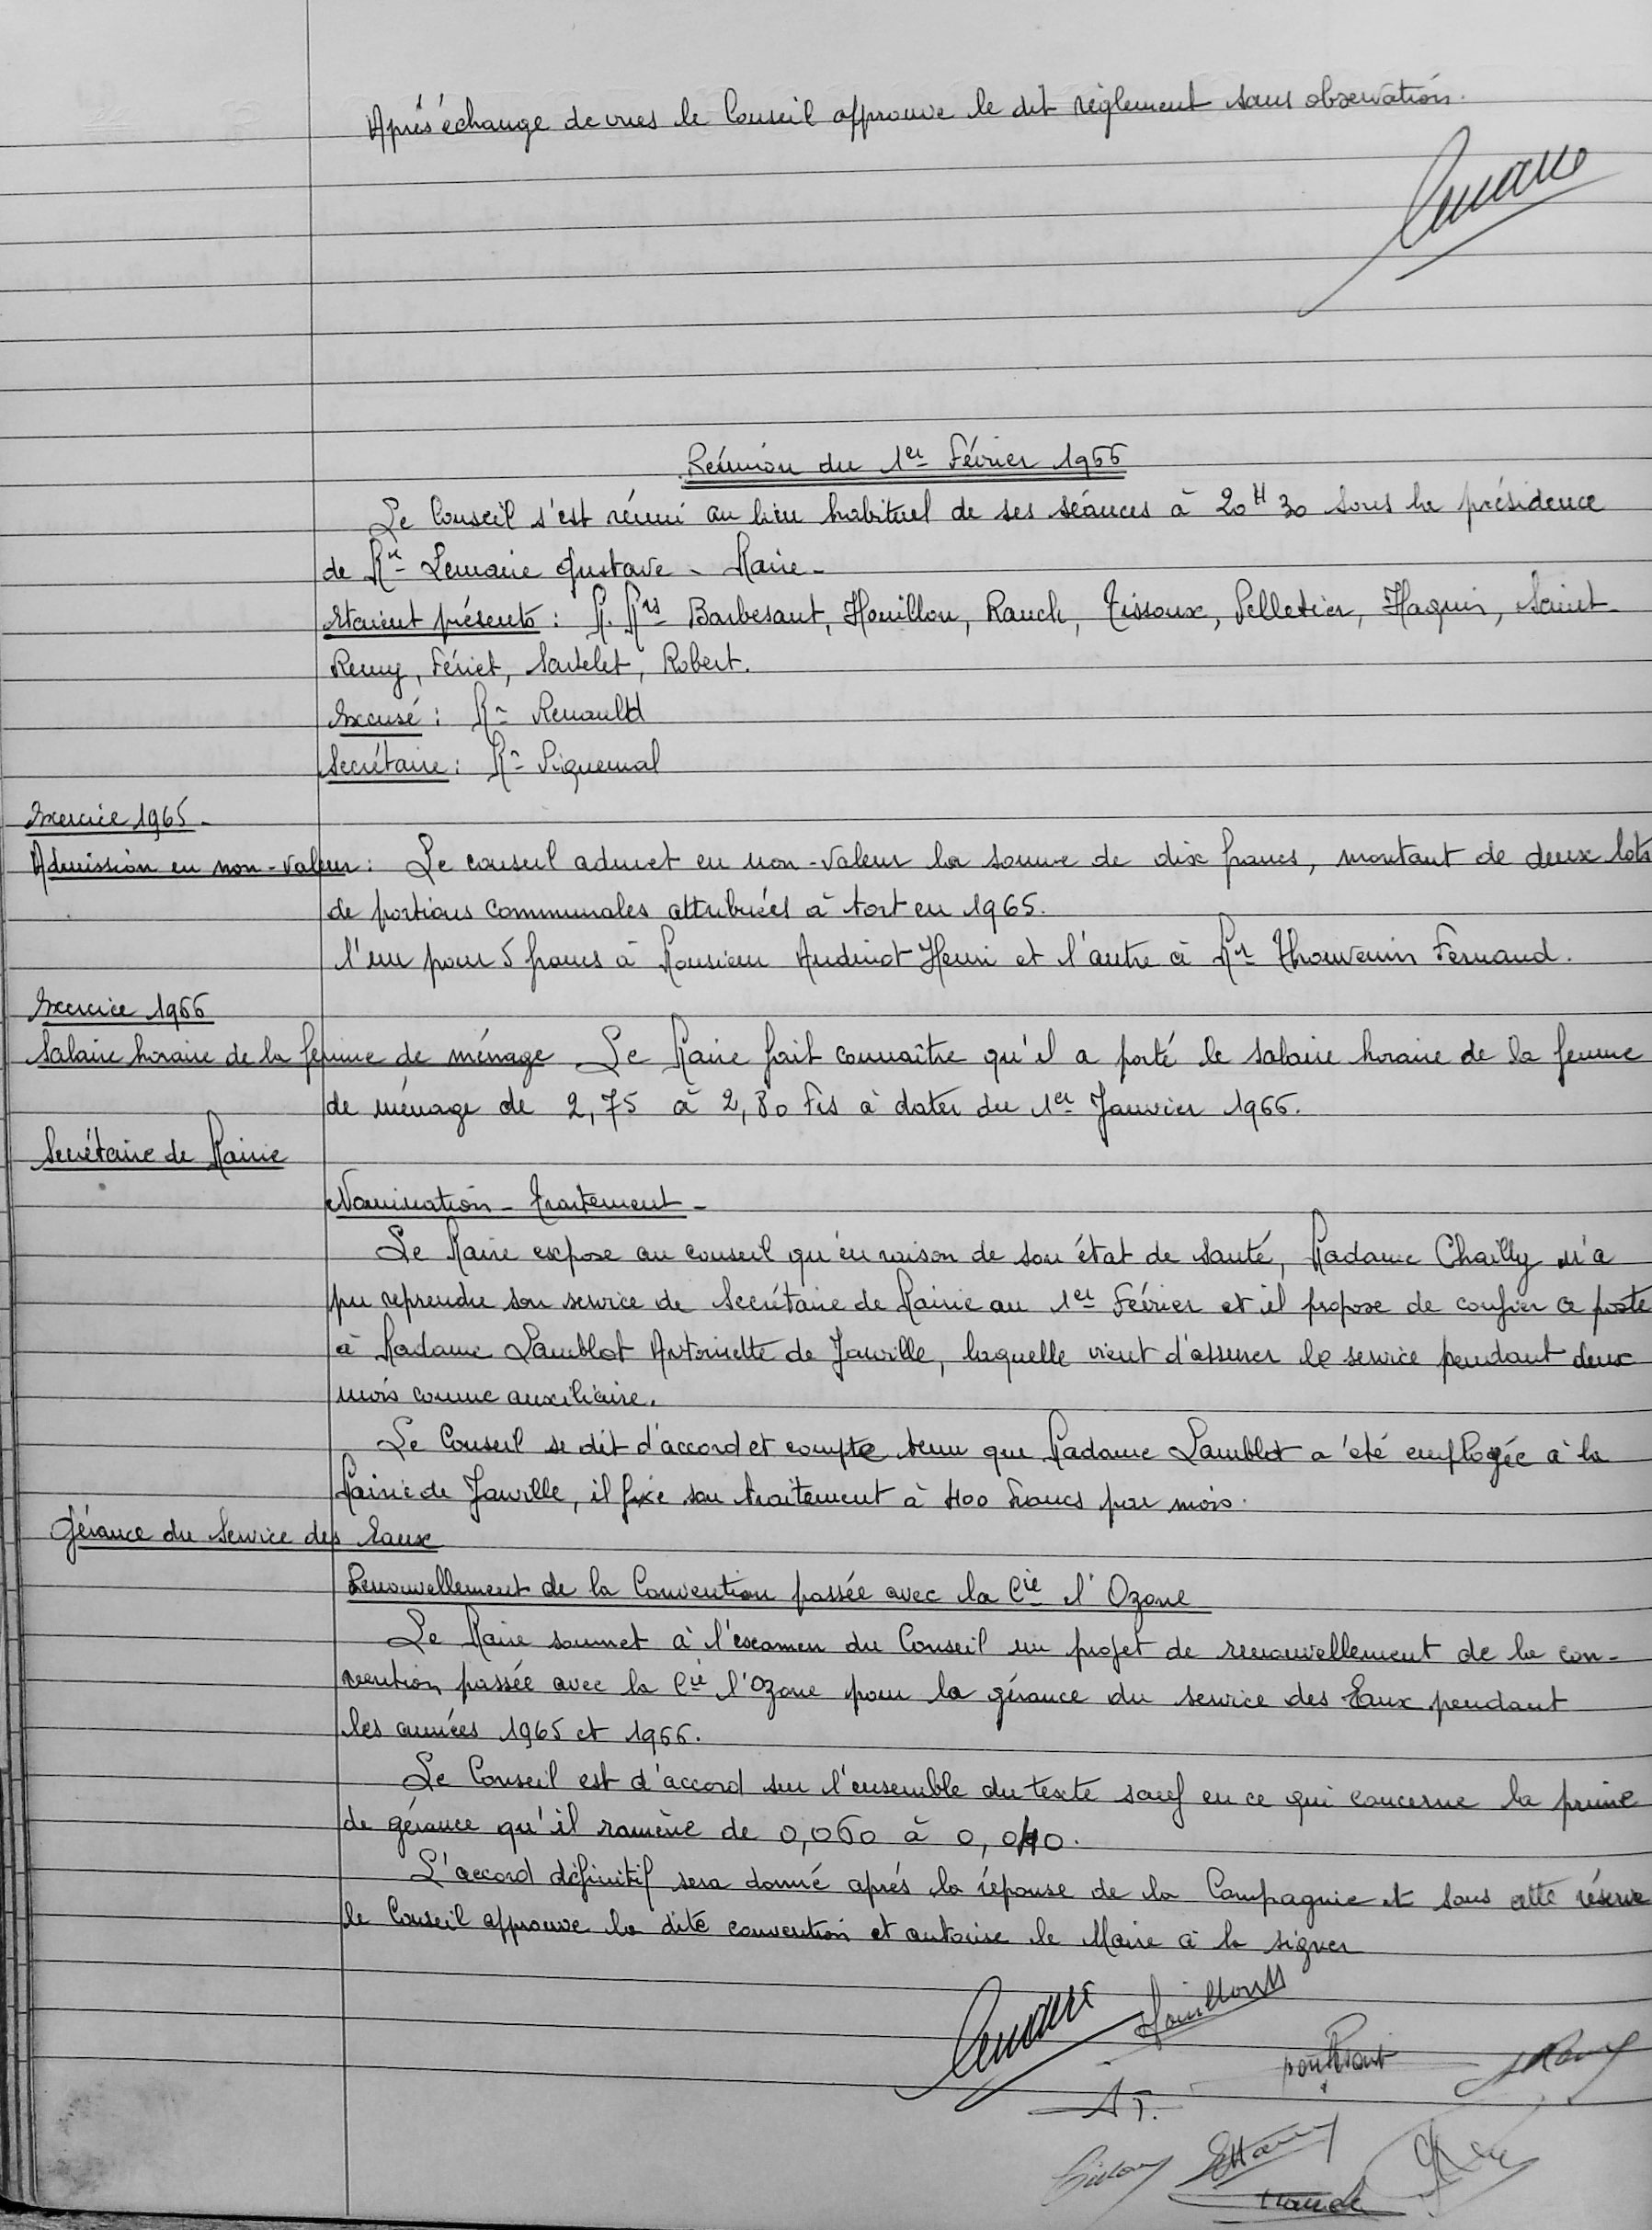 Après échange de vues le Conseil approuve le dit règlement sans observation.
Lemaire
Réunion du 1er Février 1966
Le Conseil s'est réuni au lieu habituel de ses séances à 20H30 sous la présidence
de Mr Lemaire Gustave - Maire -
Etaient présents : M. Mrs Barbesant, Houillon, Rauch, Tissoux, Pelletier, Haquin, Saint-
Remy, Fériet, Sartelet, Robert.
Excusé : Mr Renauld
Secrétaire : Mr Piquemal
Exercice 1965 -
Admission en non-valeur : Le conseil admet en non-valeur la somme de dix francs, montant de deux lots
de portions communales attribuées à tort en 1965.
l'un pour 5 francs à Monsieur Audinot Henri et l'autre à Mr Thouvenin Fernand.
Exercice 1966
Salaire horaire de la femme de ménage Le Maire fait connaître qu'il a porté le salaire horaire de la femme
de ménage de 2,75 à 2,80 Frs à dater du 1er Janvier 1966.
Secrétaire de Mairie
Nomination - Traitement -
Le Maire expose au conseil qu'en raison de son état de santé, Madame Chailly n'a
pu reprendre son service de Secrétaire de Mairie au 1er Février et il propose de confier ce poste
à Madame Lamblot Antoinette de Janville, laquelle vient d'assurer le service pendant deux
mois comme auxiliaire.
Le Conseil se dit d'accord et compte tenu que Madame Lamblot a été employée à la
Mairie de Janville, il fixe son traitement à 400 Francs par mois.
Gérance du Service des Eaux
Renouvellement de la Convention passée avec la Cie l'Ozone
Le Maire soumet à l'examen du Conseil un projet de renouvellement de la con-
vention passée avec la Cie l'Ozone pour la gérance du service des Eaux pendant
les années 1965 et 1966.
Le Conseil est d'accord sur l'ensemble du texte sauf en ce qui concerne la prime
de gérance qu'il ramène de 0,060 à 0,040.
L'accord définitif sera donné après la réponse de la Compagnie et sous cette réserve
le Conseil approuve la dite convention et autorise le Maire à la signer
Lemaire Houillon